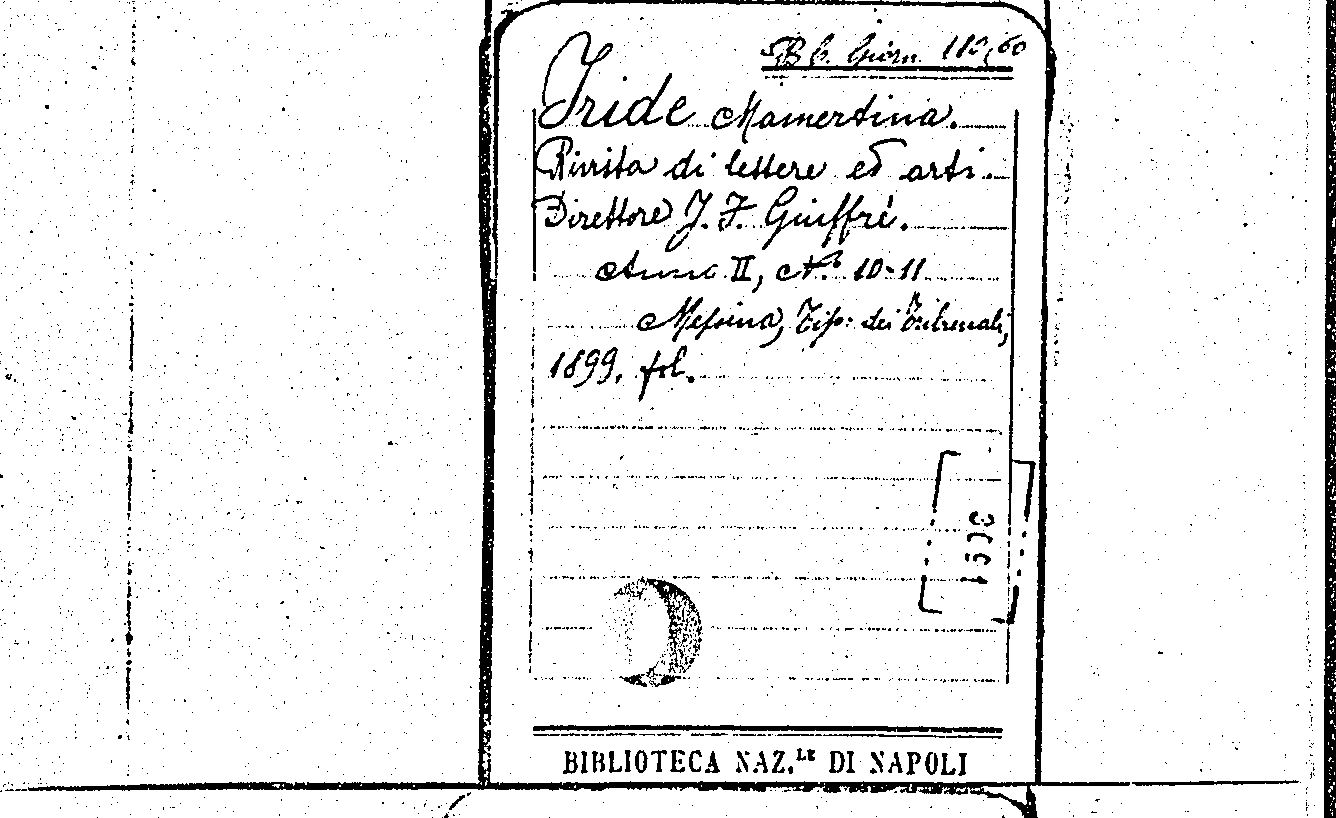 B b. Giorn. 110,60
Iride Mamertina.
Rivista di lettere ed arti.
Direttore J. F. Giuffrè.
Anno II, N.º 10-11
Messina, Tip: dei Tribunali,
1899. fol.
BIBLIOTECA NAZ.LE DI NAPOLI